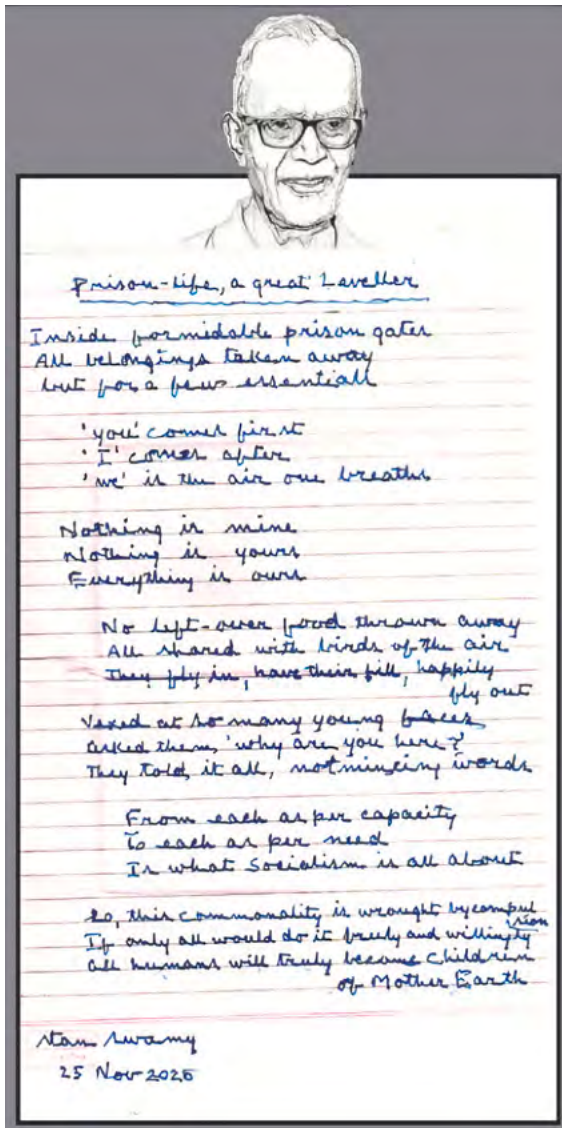 Prison-life, a great Leveller
Inside formidable prison gates
All belongings taken away
but for a few essentials
'you' comes first
'I' comes after
'we' is the air one breaths
Nothing is mine
Nothing is yours
Everything is ours
No left-over food thrown away
All shared with birds of the air
They fly in, have their fill, happily
fly out
Vexed at so many young faces
asked them, 'why are you here?'
They told it all, not mincing words
From each as per capacity
To each as per need
Is what Socialism is all about
Lo, this commonality is wrought by compul
sion
If only all would do it freely and willingly
all humans will truly become children
of Mother Earth
Stan Swamy
25 Nov 2020